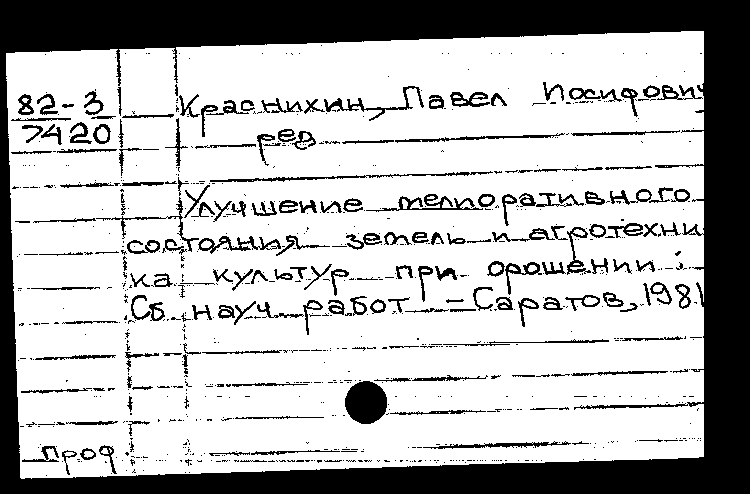 82-3 Краснихин, Павел Иосифович
7420 ред
Улучшение мелиоративного
состояния земель и агротехни
ка культур при орошении :
Сб науч. работ - Саратов, 1981
проф